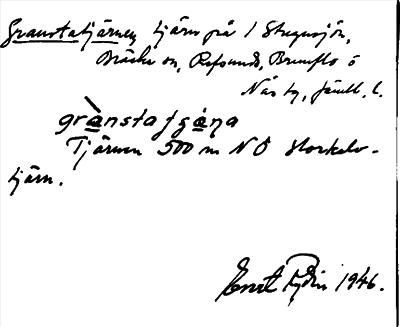 Granstatjärnen, tjärn på l Stugusjön,
Bräcke sn, Refsunds, Brunflo o
Näs tg, Jämtl. l.
grànstatjạ̈ṇa
Tjärnen 500 m NO Storkalv-
tjärn.
1946.